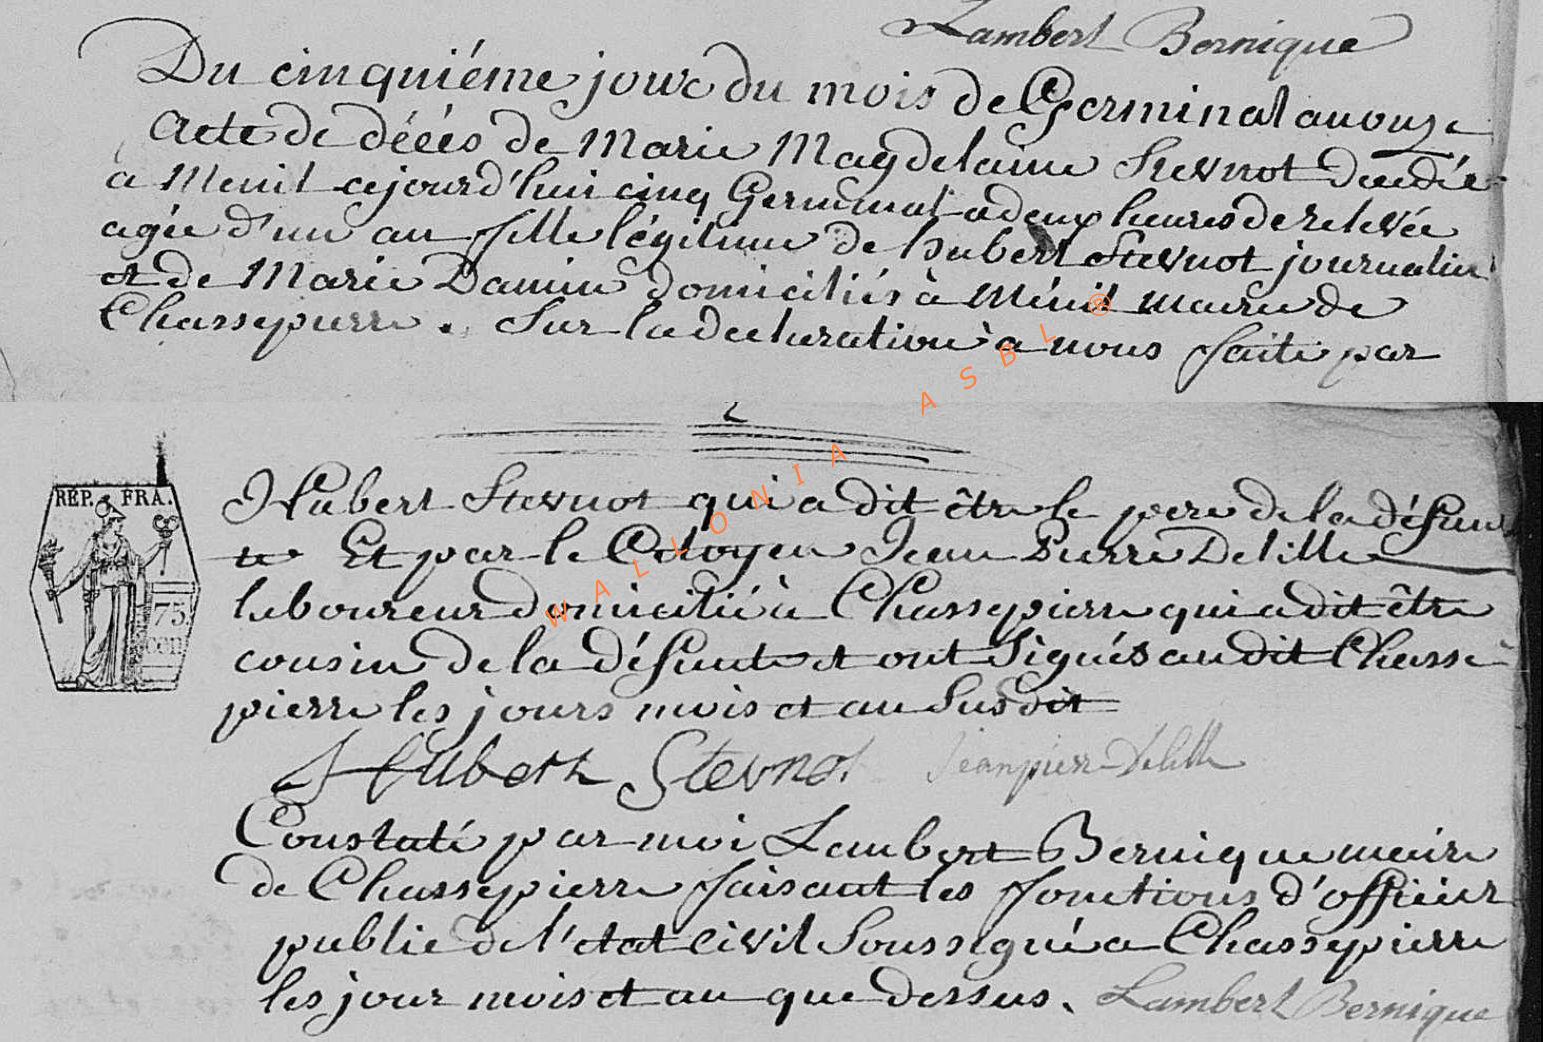 Lambert Bernique
Du cinquiéme jour du mois de Germinal an onze
Acte de décés de Marie Magdelaine Stevnot décédée
a Menil cejourd'hui cinq Germinal a deux heures de relevée
agée d'un an fille légitime de hubert Stevnot journalier
et de Marie Damin domiciliés à Ménil mairie de
Chassepierre. Sur la declaration à nous faite par
REP. FRA.
75
cen
Hubert Stevnot qui a dit être le pere de la défun
te Et par le Citoyen Jean Pierre Delille
laboureur domicilié à Chassepierre qui a dit être
cousin de la défunte et ont Signés au dit Chasse
pierre les jours mois et an Susdit
Hubert Stevnot Jean pierr Delille
Constaté par moi Lambert Bernique maire
de Chassepierre faisant les fonctions d'officier
public de l'etat civil Soussigné a Chassepierre
les jour mois et an que dessus. Lambert Bernique
WALLONIA ASBL ®